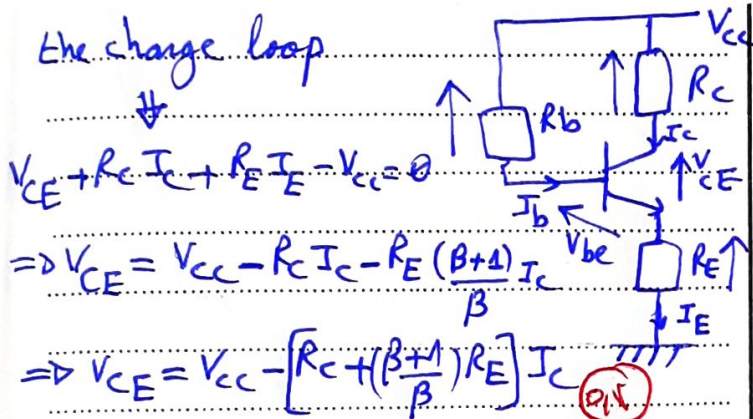 the charge loop
⇓
V_CE + R_C I_C + R_E I_E - V_CC = 0
=> V_CE = V_CC - R_C I_C - R_E (β+1)/β I_C
=> V_CE = V_CC - [R_C + ((β+1)/β) R_E] I_C
0,5
V_CC
R_C
Rb
I_C
V_CE
I_b
V_be
R_E
I_E